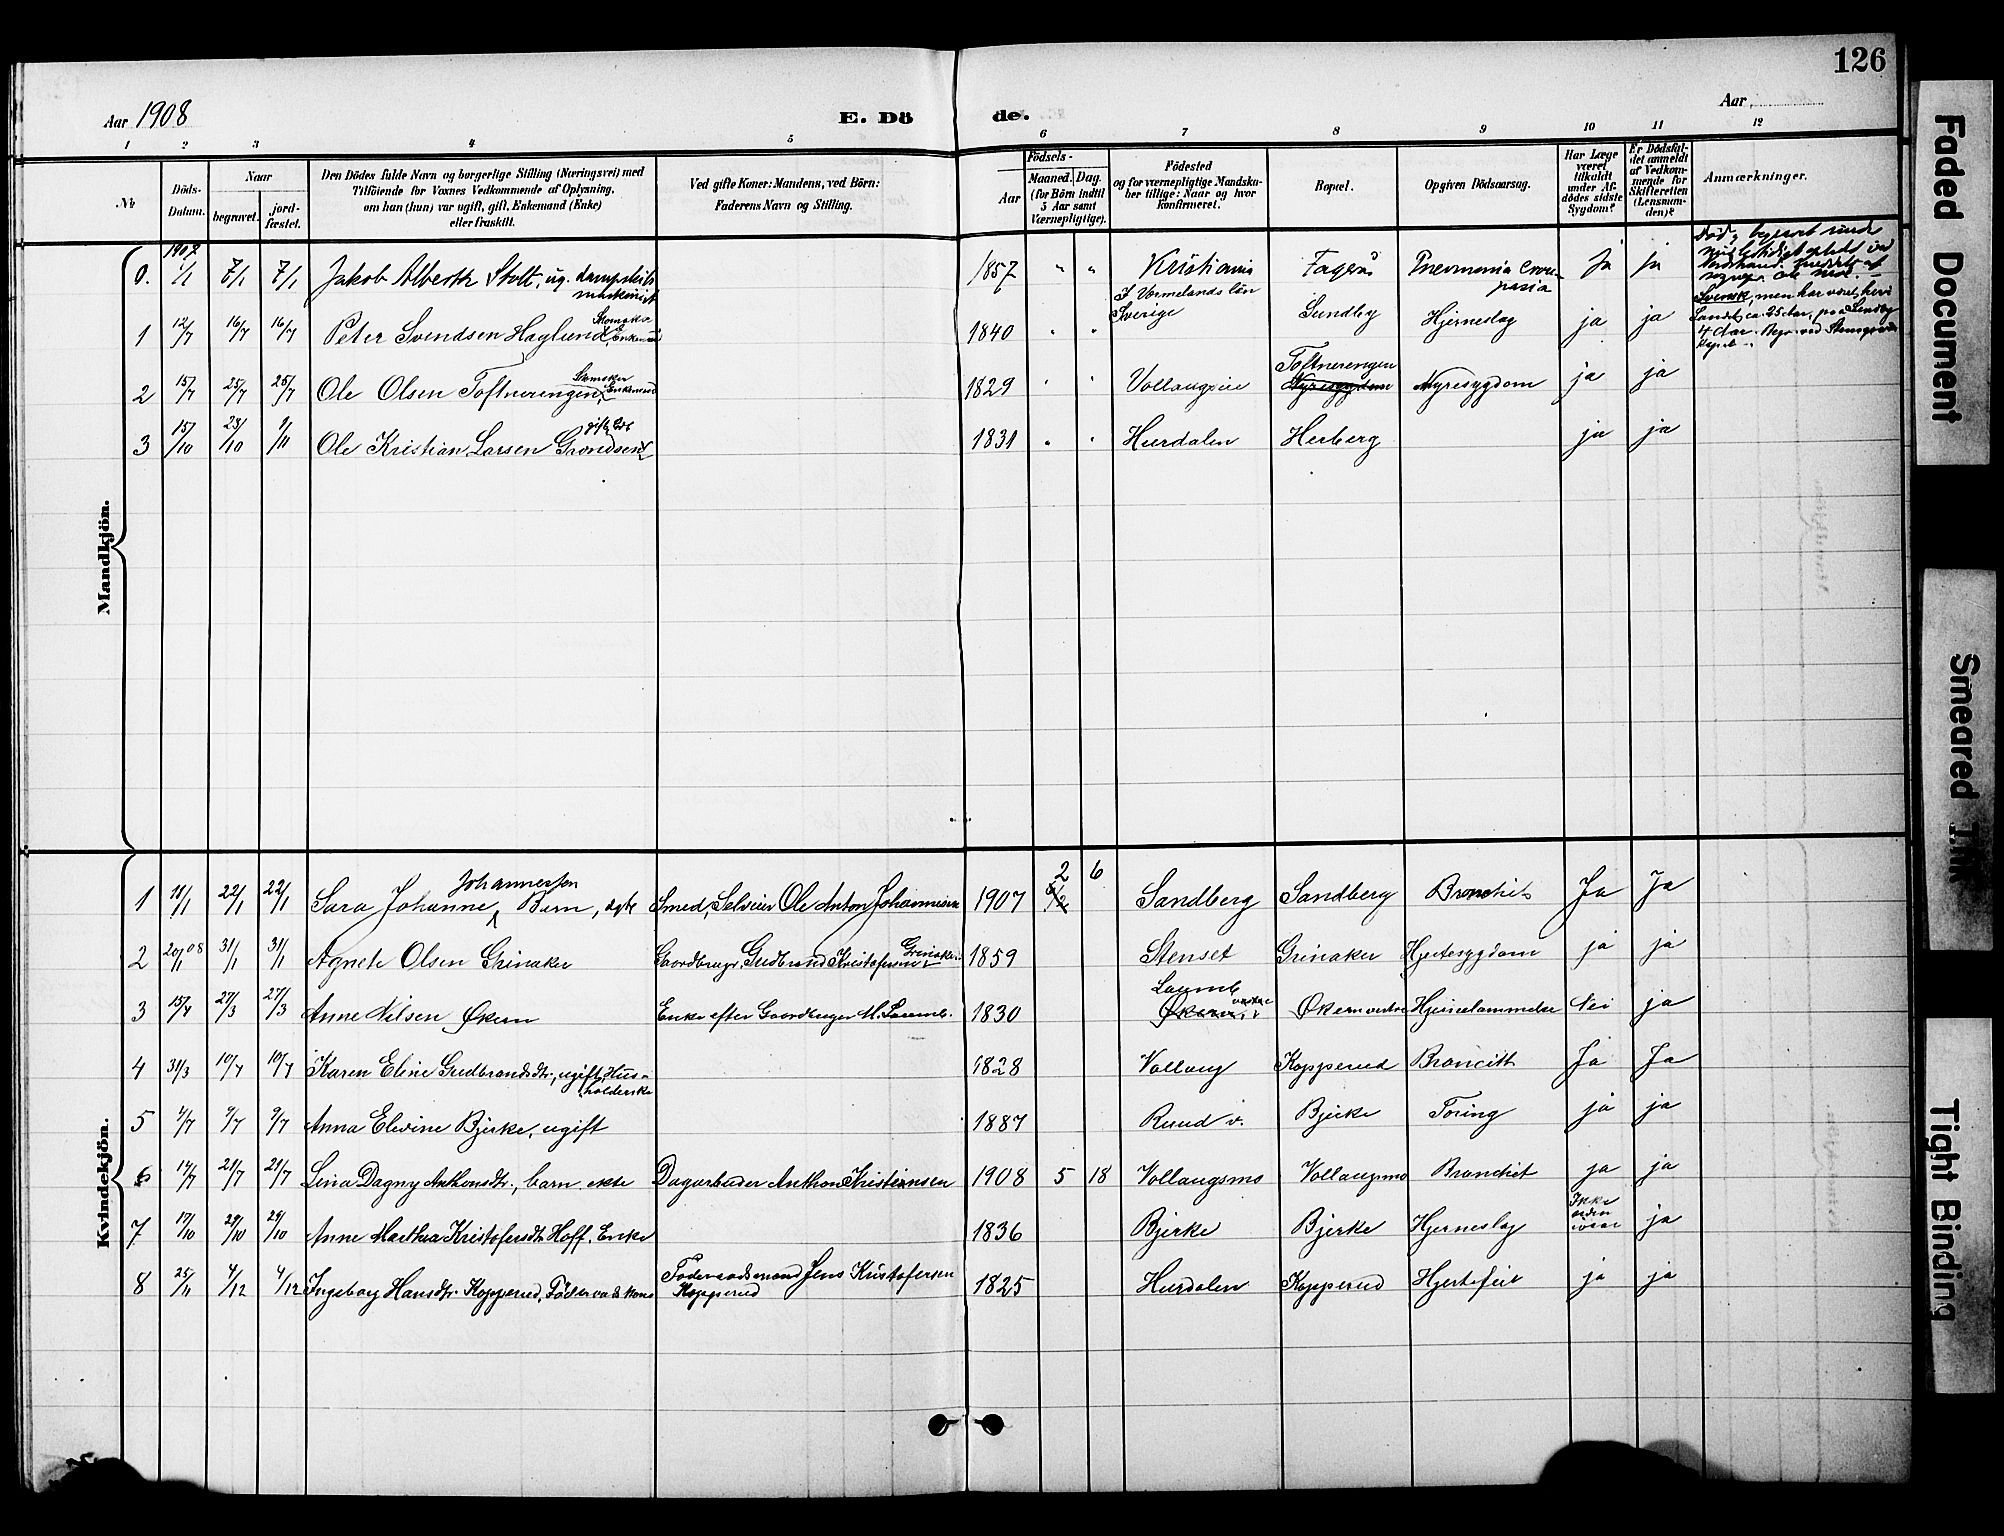 126
Aar 1908 E. Dö de. Aar
1 2 3 4 5 6 7 8 9 10 11 12
No Döds-Datum. Naar begravet. jord-fæstet. Den Dödes fulde Navn og borgerlige Stilling (Næringsvei) med Tilföiende for Voxnes Vedkommende af Oplysning, om han (hun) var ugift, gift, Enkemand (Enke) eller fraskilt. Ved gifte Koner: Mandens, ved Börn: Faderens Navn og Stilling. Födsels- Aar Maaned. Dag. (for Börn indtil 5 Aar samt Værnepligtige). Födested og for værnepligtige Mandskaber tillige: Naar og hvor konfirmeret. Bopæl. Opgiven Dödsaarsag. Har Læge været tilkaldt under Afdödes sidste Sygdom? Er Dödsfaldet anmeldt af Vedkommende for Skifteretten (Lensmanden)? Anmærkninger.
Mandkjön.
0. 1907 1/1 7/1 7/1 Jakob Alberth Stolt, ug. dampskibs maskinist 1857 " " Kristiania Fagerås Pneumonia Ja ja
1 12/7 16/7 16/7 Peter Svendsen Haglund, Skomaker Enkemand 1840 " " I Vermelands län Sverige Sundby Hjerneslag ja ja Svensk, men har været her i Landet ca 25 Aar, på Sundby 4 Aar.
2 15/7 25/7 25/7 Ole Olsen Toftnerengen, Enkemand 1829 " " Vollaugseie Toftnerengen Nyresygdom Nyresygdom ja ja
3 15/10 23/10 1/11 Ole Kristian Larsen Grondsend 1831 " " Hurdalen Herberg ja ja
Kvindekjön.
1 11/1 22/1 22/1 Sara Johanne Johannessen Barn, ægte Smed, Selveier Ole Anton Johannesen 1907 2 6 Sandberg Sandberg Bronchit Ja Ja
2 20/1 08 31/1 31/1 Agnete Olsen Grinaker Gaardbruger Gudbrand Kristofersen Grinaker 1859 Stenset Grinaker Hjertesygdom ja ja
3 15/4 27/3 27/3 Anne Nilsen Økern Enke efter Gaardbruger M. Laumb. 1830 Laumb Økern Økern vestre Hjernelammelse Nei ja
4 31/3 10/4 10/4 Karen Eline Gudbrandsdtr., ugift, Husholderske 1828 Vollaug Kopperud Broncitt Ja Ja
5 4/7 9/7 9/7 Anna Elevine Bjerke, ugift 1887 Ruud v. Bjerke Tæring ja ja
6 14/7 21/7 21/7 Lina Dagny Anthonsdtr., barn ekte Dagarbeider Anthon Kristiansen 1908 5 18 Vollaugsmo Vollaugsmo Bronchit ja ja
7 17/10 29/10 29/10 Anne Marthea Kristofersdtr Hoff, Enke 1836 Bjerke Bjerke Hjerneslag Ikke siden ivaar ja
8 25/11 4/12 4/12 Ingeborg Hansdtr. Kopperud, Föderaadskone Föderaadsmand Jens Kristofersen Kopperud 1825 Hurdalen Kopperud Hjertefeil ja ja
Faded Document
Smeared Ink
Tight Binding